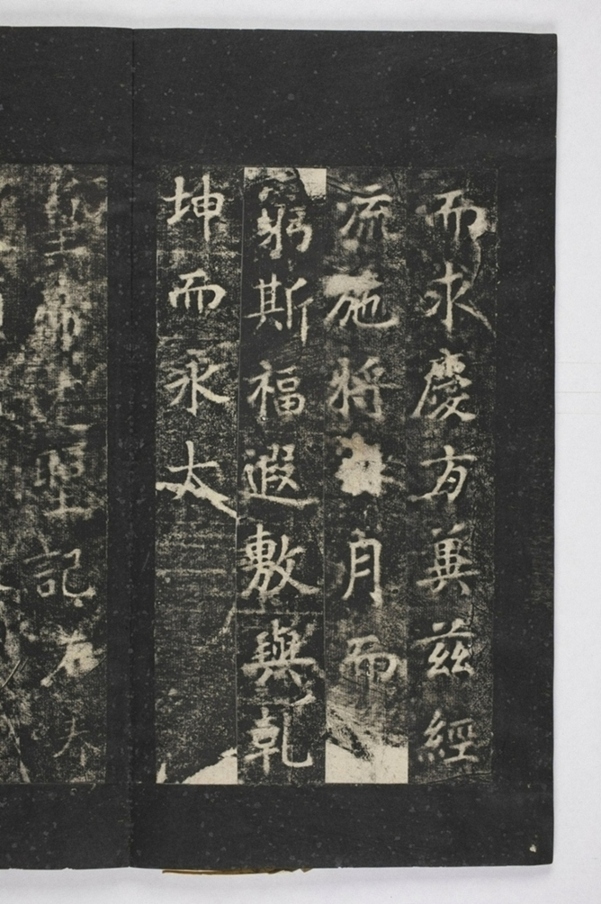 而求慶方兾兹經
流施將月而
躬斯福遐敷與乾
坤而永太
聖記右